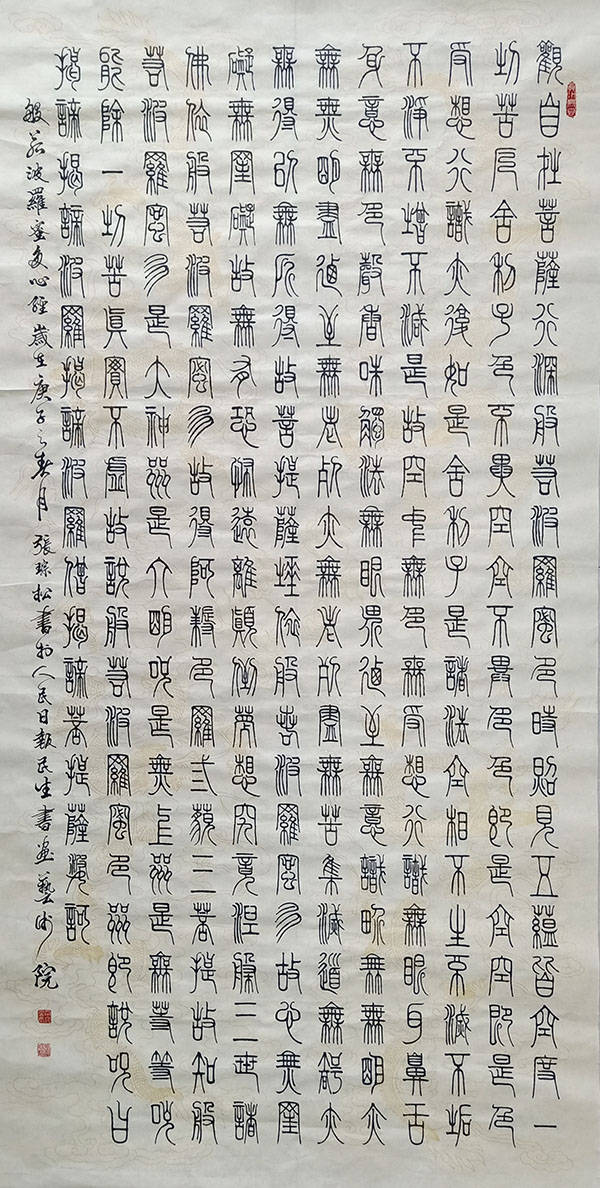 觀自在菩薩行深般若波羅蜜多時照見五蘊皆空度一
切苦厄舍利子色不異空空不異色色即是空空即是色
受想行識亦復如是舍利子是諸法空相不生不滅不垢
不淨不增不減是故空中無色無受想行識無眼耳鼻舌
身意無色聲香味觸法無眼界乃至無意識界無無明亦
無無明盡乃至無老死亦無老死盡無苦集滅道無智亦
無得以無所得故菩提薩埵依般若波羅蜜多故心無罣
礙無罣礙故無有恐怖遠離顛倒夢想究竟涅槃三世諸
佛依般若波羅蜜多故得阿耨多羅弎藐三菩提故知般
若波羅蜜多是大神咒是大明咒是無上咒是無等等咒
能除一切苦真實不虛故說般若波羅蜜多咒即說咒曰
揭諦揭諦波羅揭諦波羅僧揭諦菩提薩婆訶
般若波羅蜜多心經歲在庚子之春月張琮松書於人民日報民生書畫藝術院